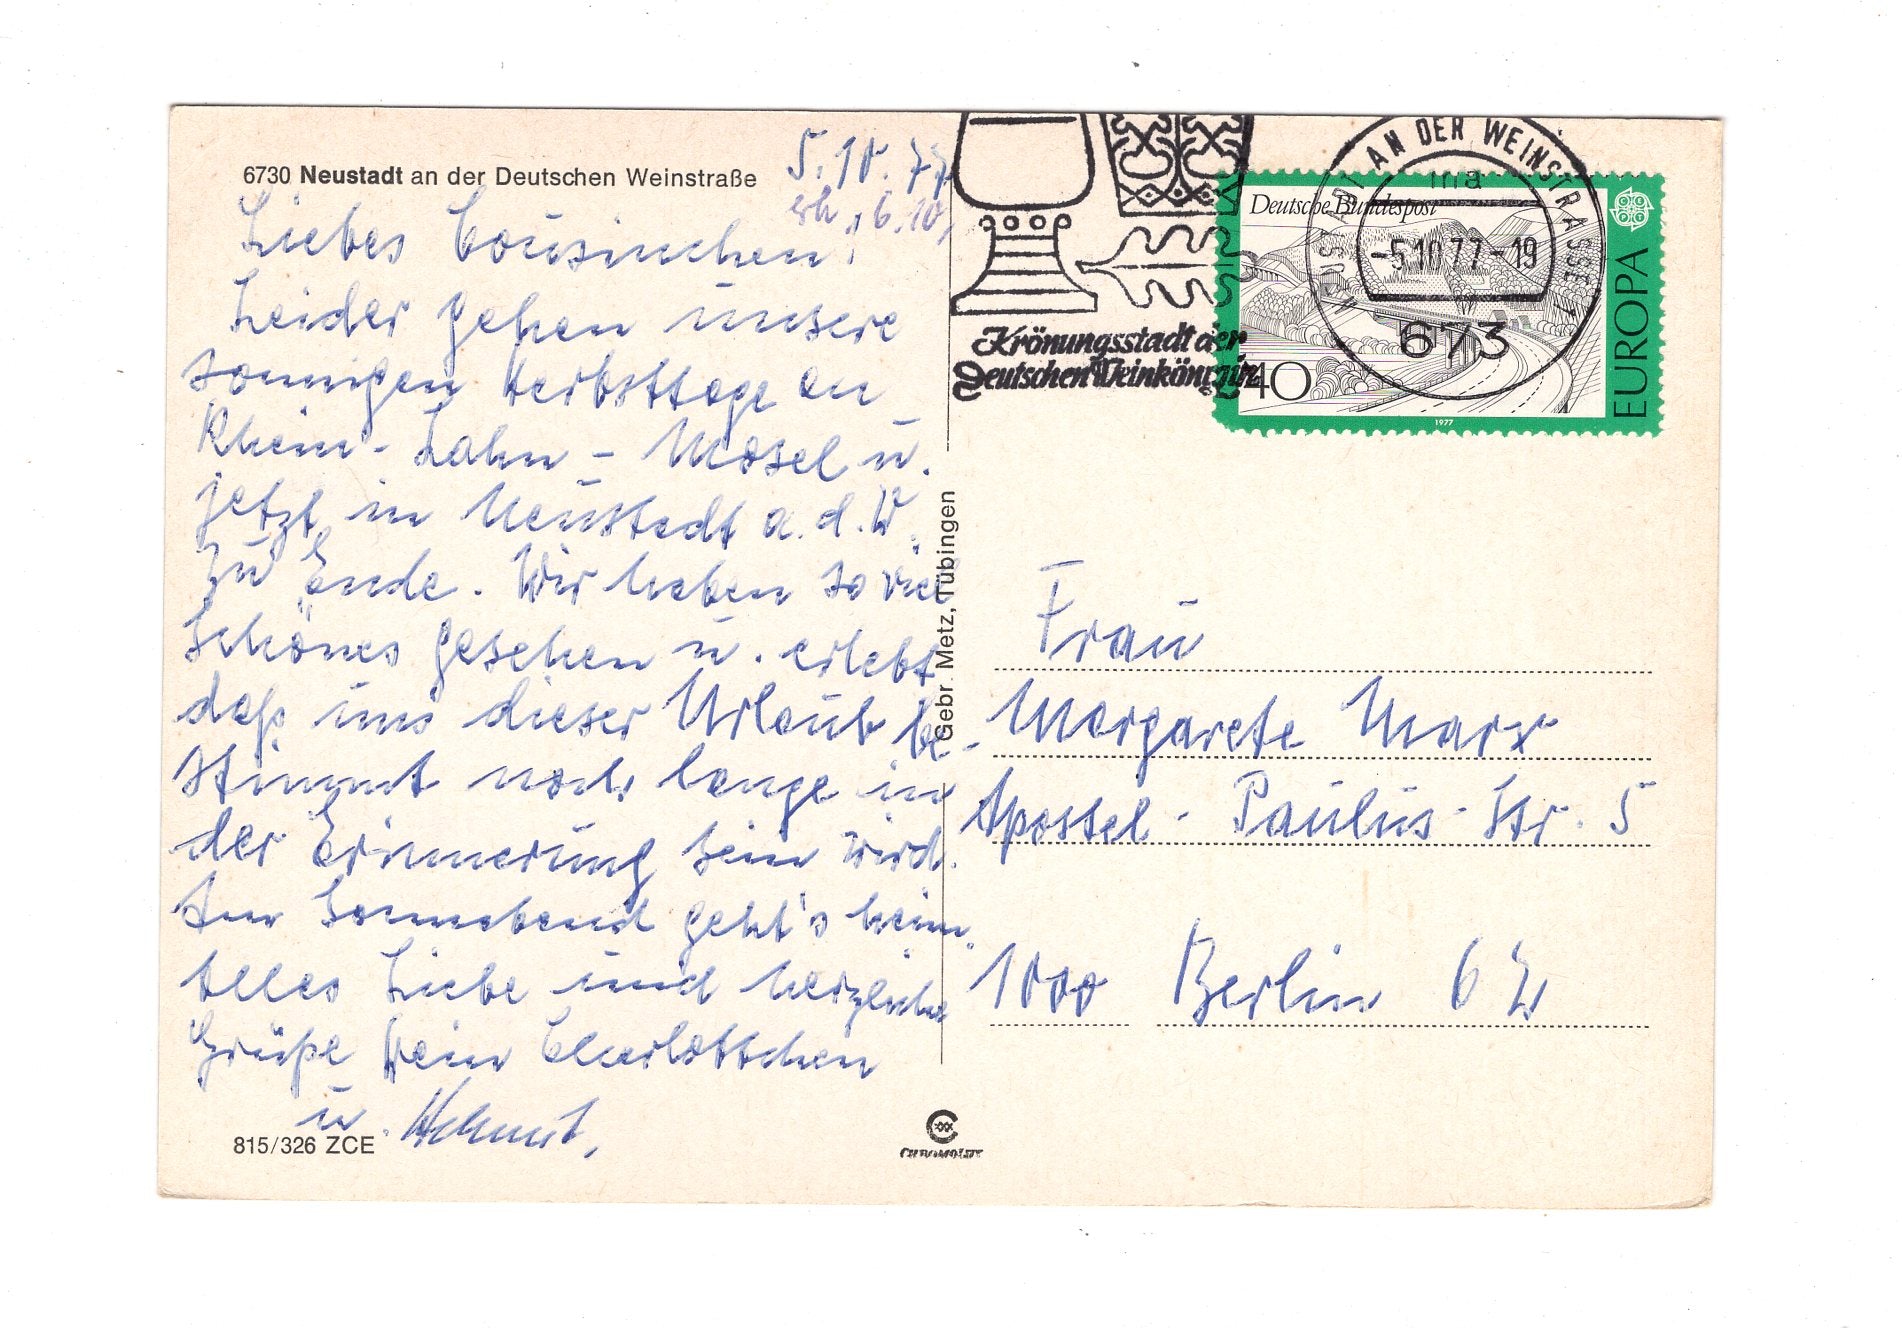 6730 Neustadt an der Deutschen Weinstraße
5.10.77
erh. 6.10.
Liebes Cousinchen!
Leider gehen unsere
sonnigen Herbsttage an
Rhein - Lahn - Mosel u.
jetzt in Neustadt a. d. W.
zu Ende. Wir haben so viel
Schönes gesehen u. erlebt
daß uns dieser Urlaub be-
stimmt noch lange in
der Erinnerung sein wird.
Am Sonnabend geht's heim.
Alles Liebe und herzliche
Grüße Dein Charlottchen
u. Helmut.
815/326 ZCE
Gebr. Metz, Tübingen
CHROMOLUX
Krönungsstadt der
Deutschen Weinkönigin
NEUSTADT AN DER WEINSTRASSE 1
ma
-5.10.77-19
673
Deutsche Bundespost
40
EUROPA
1977
Frau
Margarete Marx
Apostel-Paulus-Str. 5
1000 Berlin 62